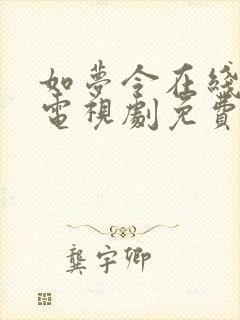 如夢令在綫
電視劇免費
龔宇卿